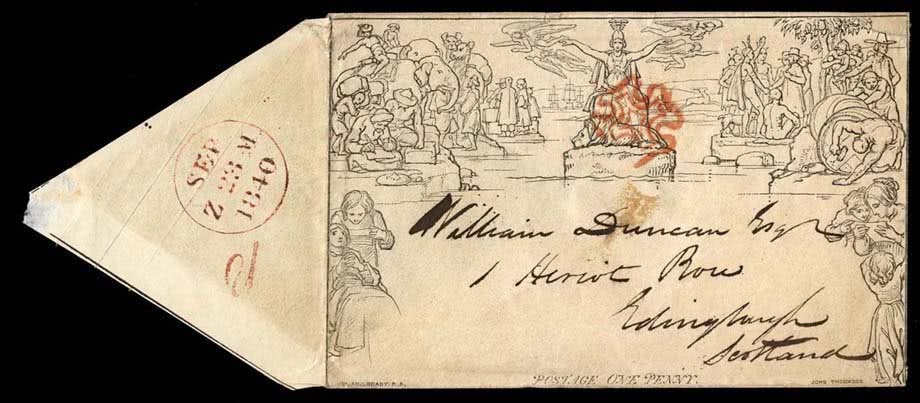 SEP
Z 23 M
1840
2
William Duncan Esqr
1 Heriot Row
Edinburgh
Scotland
W. MULREADY. R.A.
POSTAGE ONE PENNY.
JOHN THOMPSON